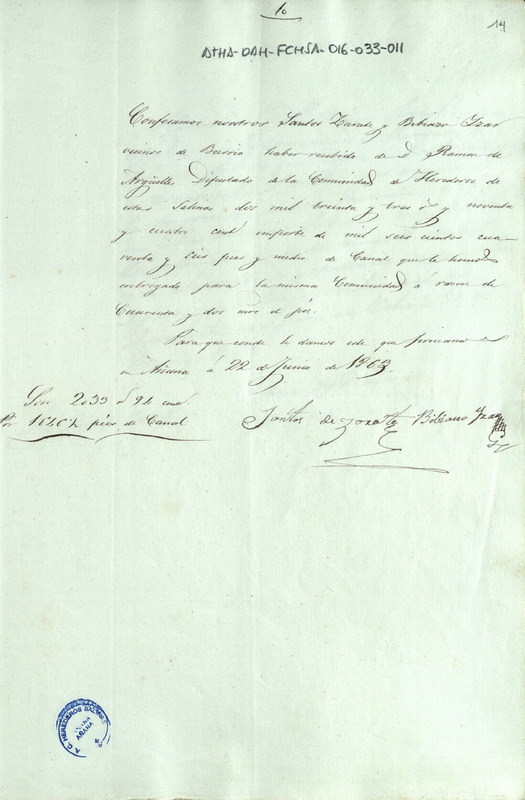 10
14
ATHA-DAH-FCHSA-016-033-011
Confesamos nosotros Santos Zarate y Bibiano Yzar
vecinos de Barrio haber recibido de D. Ramon de
Argüelles Diputado de la Comunidad de Herederos de
estas Salinas dos mil treinta y tres y noventa
y cuatro cent importe de mil seis cientos cua-
renta y seis pies y medio de Canal que le hemos
entregado para la misma Comunidad á razon de
Cuarenta y dos mrs el pie.
Para que conste le damos este que firmamos
en Añana á 22 de Junio de 1863.
Son 2033 94 cent
Por 1646 ½ pies de Canal
Santos de Zarate Bibiano Yzar
A.C. HEREDEROS SALINAS
AÑANA